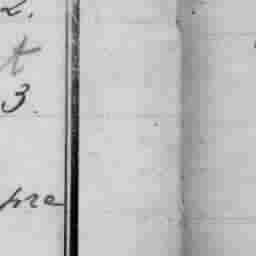 2.
t
3.
pre